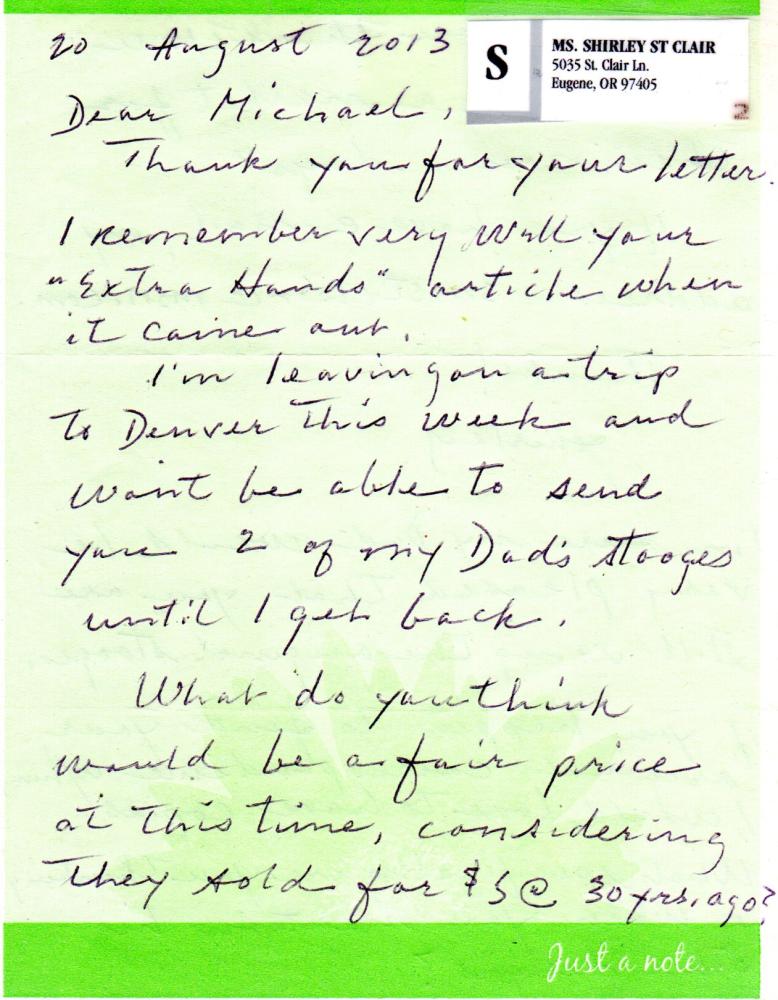 20 August 2013
S
MS. SHIRLEY ST CLAIR
5035 St. Clair Ln.
Eugene, OR 97405
2
Dear Michael,
Thank you for your letter.
I remember very well your
"Extra Hands" article when
it came out.
I'm leaving on a trip
to Denver this week and
won't be able to send
you 2 of my Dad's stooges
until I get back.
What do you think
would be a fair price
at this time, considering
they sold for $5@ 30 yrs. ago?
Just a note...